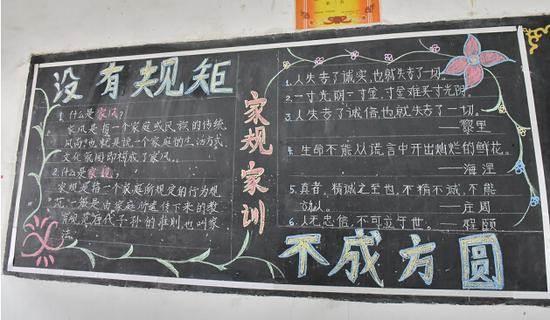 没有规矩
1. 什么是家风?
家风是指一个家庭或民族的传统
风尚,也就是说一个家庭的生活方式
文化氛围即构成了家风。
2. 什么是家规?
家规是指一个家庭所规定的行为规
范,一般是由家庭所遗传下来的教
育规范后代子孙的准则,也叫家
法。
家规家训
1. 人失去了诚实,也就失去了一切。
2. 一寸光阴一寸金,寸金难买寸光阴。
3. 人失去了诚信也就失去了一切。
——黎里
4. 生命不能从谎言中开出灿烂的鲜花。
——海涅
5. 真者,精诚之至也,不精不诚,不能
动人。——庄周
6. 人无忠信,不可立于世。——程颐
不成方圆